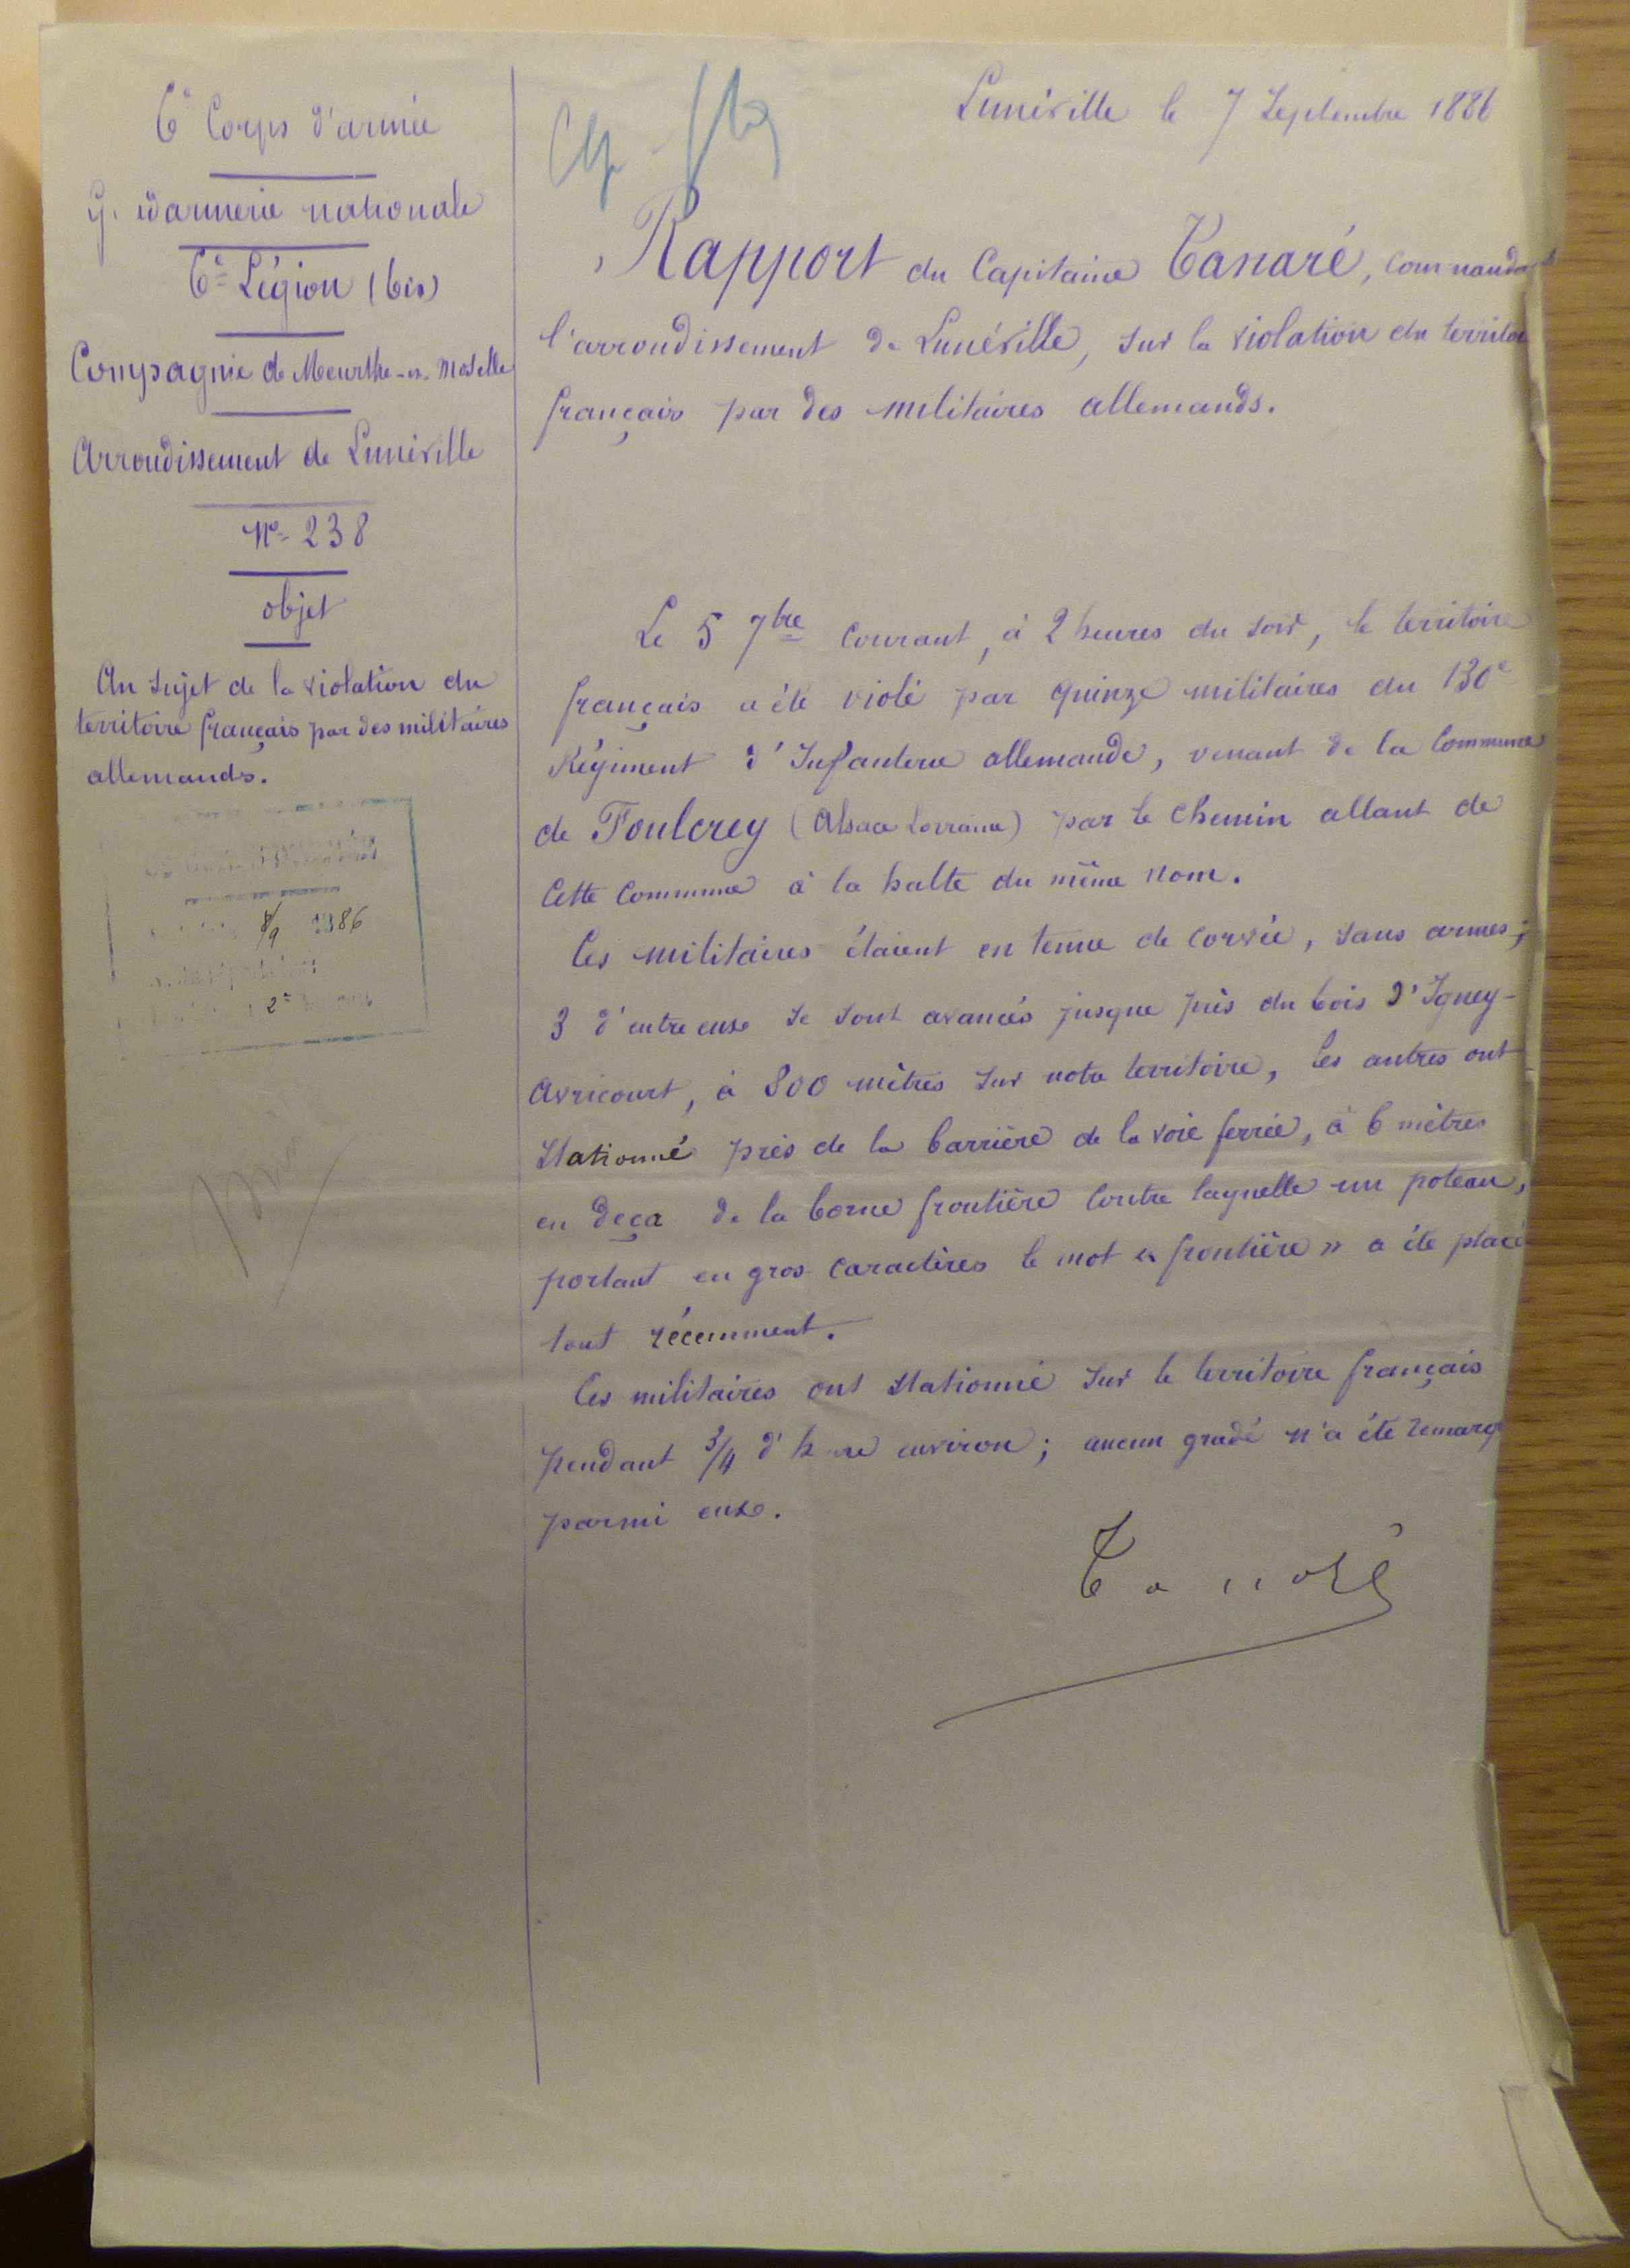 6e Corps d'armée
Gendarmerie nationale
6e Légion (bis)
Compagnie de Meurthe-et-Moselle
Arrondissement de Lunéville
No 238
objet
Au sujet de la violation du
territoire français par des militaires
allemands.
8/9 1886
2e
Lunéville le 7 Septembre 1886
Rapport du Capitaine Canaré, commandant
l'arrondissement de Lunéville, sur la violation du territoi
français par des militaires allemands.
Le 5 7bre courant, à 2 heures du soir, le territoire
français a été violé par quinze militaires du 130e
Régiment d'Infanterie allemande, venant de la Commune
de Foulcrey (Alsace Lorraine) par le chemin allant de
cette commune à la halte du même nom.
Ces militaires étaient en tenue de corvée, sans armes;
3 d'entre eux se sont avancés jusque près du bois d'Igney-
Avricourt, à 800 mètres sur notre territoire, les autres ont
stationné près de la barrière de la voie ferrée, à 6 mètres
en deça de la borne frontière contre laquelle un poteau,
portant en gros caractères le mot « frontière » a été placé
tout récemment.
Ces militaires ont stationné sur le territoire français
pendant 3/4 d'heure environ; aucun gradé n'a été remarq
parmi eux.
Canaré